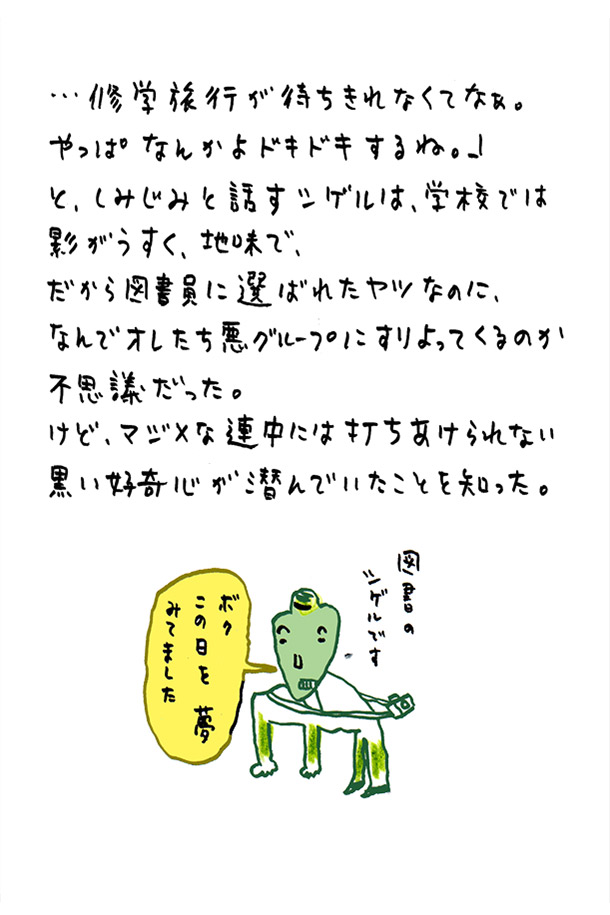 …修学旅行が待ちきれなくてなぁ。
やっぱ なんかよドキドキするね。」
と、しみじみと話すシゲルは、学校では
影がうすく、地味で、
だから図書員に選ばれたヤツなのに、
なんでオレたち悪グループにすりよってくるのか
不思議だった。
けど、マジメな連中には打ちあけられない
黒い好奇心が潜んでいたことを知った。
図書の
シゲルです
ボク
この日を 夢
みてました